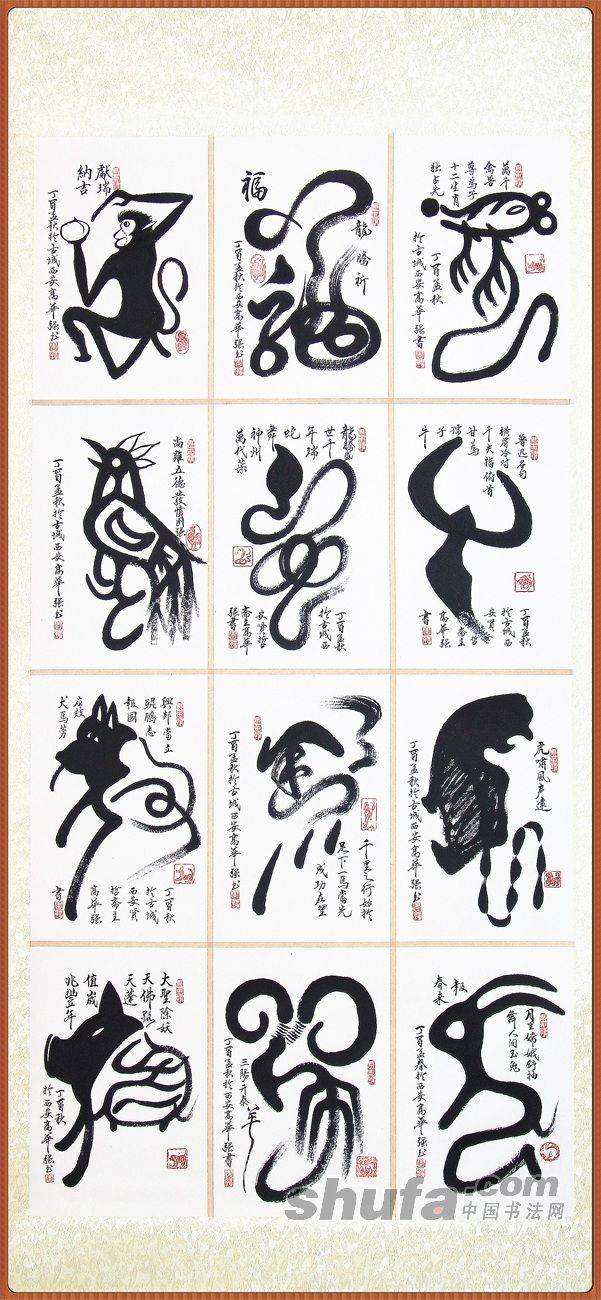 萬千
禽兽
尊為子
十二生肖
独占先
丁酉孟秋
於古城西安高華强書
魯迅名句
横眉冷对
千夫指俯首
甘為
孺
子
牛
丁酉孟秋
於古城西
安賢哲
斋主
高華强
書
虎啸風声遠
丁酉孟秋於古城西安高華强书
月里嫦娥舒袖
舞人间玉兔
報
春来
丁酉孟春於西安高華强书
龍騰祈
福
丁酉孟秋於西安高華强书
龍騰盛
世千
年瑞
蛇
舞
神州
萬代荣
丁酉孟秋
於古城西
安賢哲
斋主高華
强書
千里之行始於
足下一馬當先
成功在望
丁酉孟秋於古城西安高華强书
三陽开泰
羊
丁酉孟秋於西安高華强書
獻瑞
納吉
丁酉孟秋於古城西安高華强书
尚雞五德发憤图强
丁酉孟秋於古城西安高華强书
興邦當立
鯤鵬志
報國
应效
犬馬劳
丁酉秋
於古城
西安賢
哲斋主
高華强
書
大聖除妖
天佛路
天蓬
值歲
兆豐年
丁酉秋
於西安高華强书
shufa.com
中国书法网